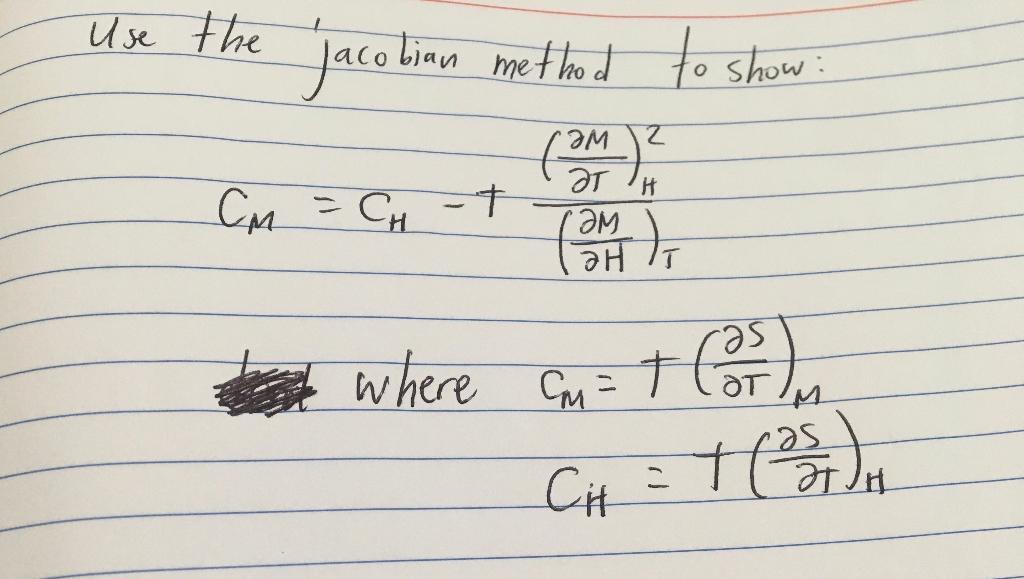 Use the jacobian method to show:
C_M = C_H - T (∂M/∂T)_H^2 / (∂M/∂H)_T
where C_M = T (∂S/∂T)_M
C_H = T (∂S/∂T)_H